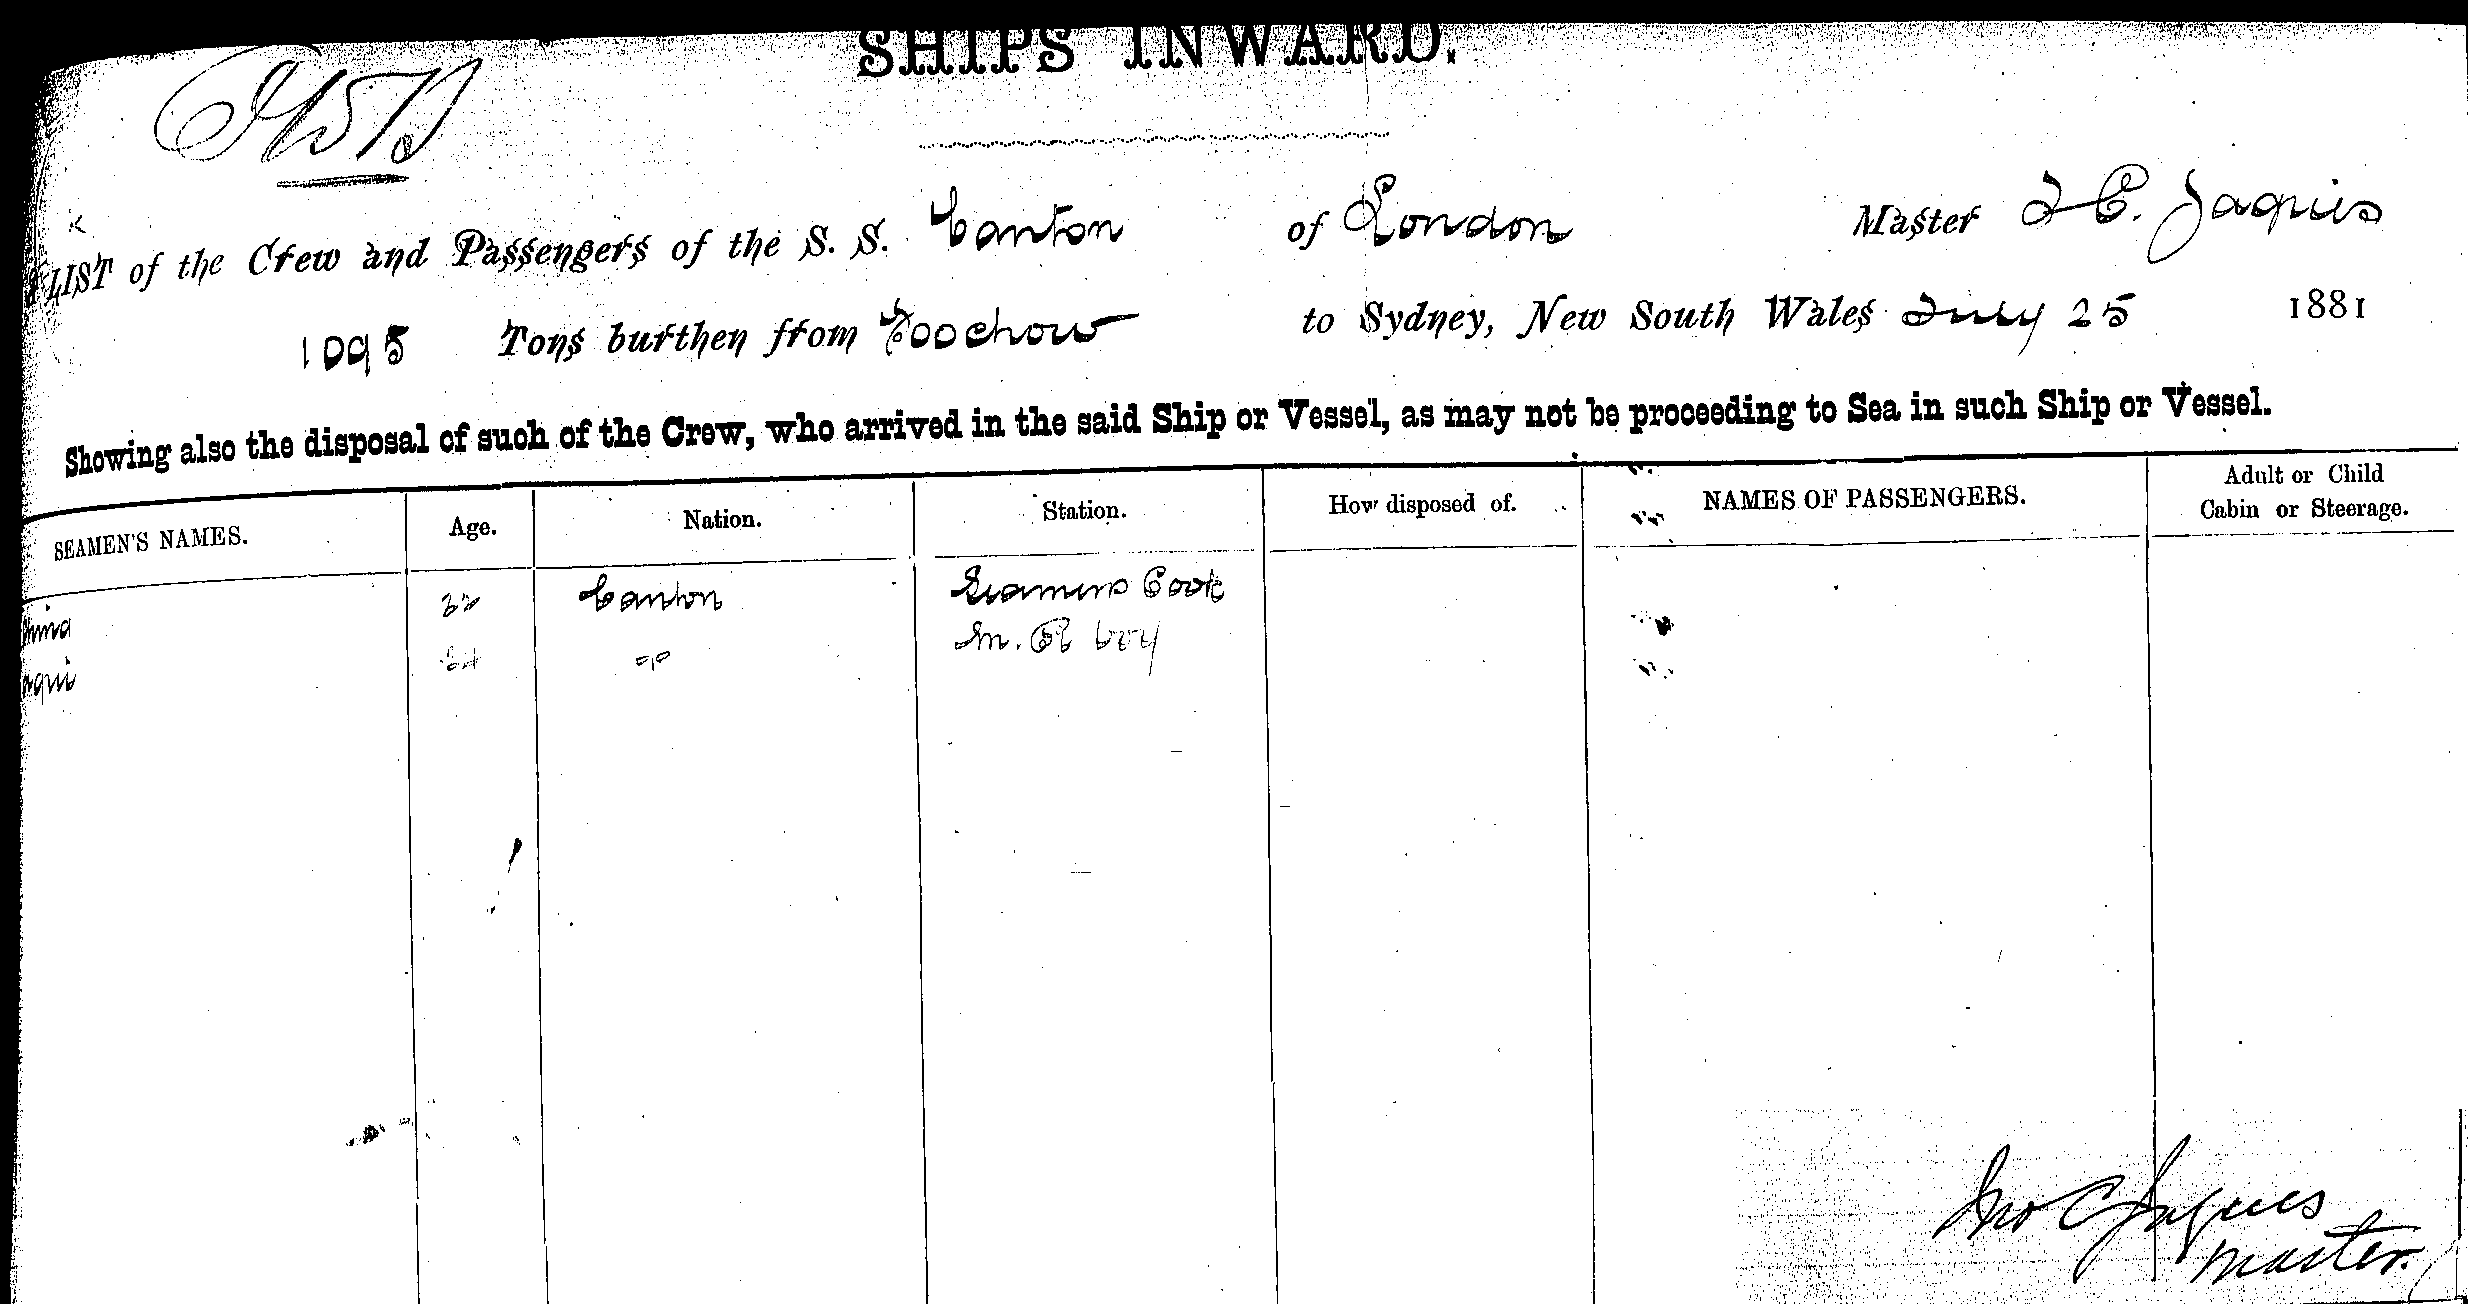 SHIPS INWARD.
LIST of the Crew and Passengers of the S. S. Canton of London Master J C. Jaques
1095 Tons burthen from Foochow to Sydney, New South Wales July 25 1881
Showing also the disposal of such of the Crew, who arrived in the said Ship or Vessel, as may not be proceeding to Sea in such Ship or Vessel.
SEAMEN'S NAMES. Age. Nation. Station. How disposed of. NAMES OF PASSENGERS. Adult or Child Cabin or Steerage.
Canton Seamens Cook
do M. R boy
Jno C Jaques
Master.